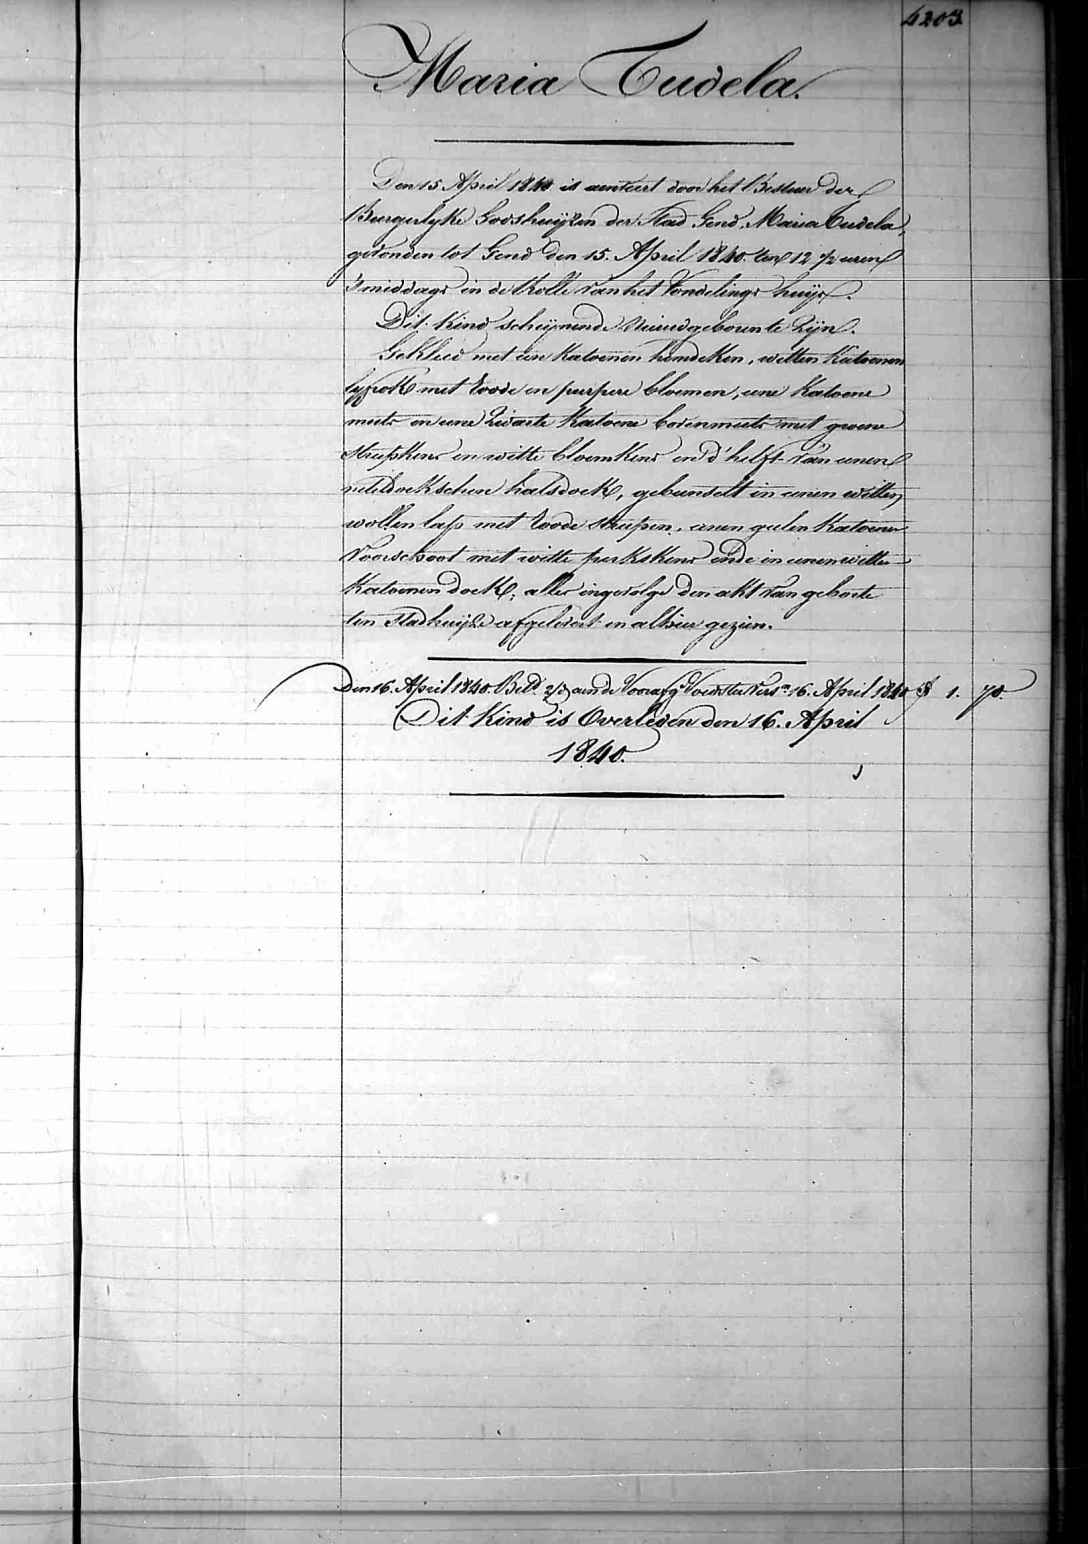 4203
Maria Tudela.
Den 15 April 1840 is aenveert door het Bestuer der
Burgerlyke Godshuijzen der Stad Gend, Maria Tudela,
gevonden tot Gend den 15. April 1840. ten 12 1/2 uren
'S middags in de Rolle van het Vondelings huijs.
Dit Kind scheijnende Nieuwgeboren te Zijn.
Gekleed met een Katoenen hemdeken, witten Katoenen
lyfrok met Roode en purpere bloemen, eene Katoene
muts en eene Zwarte Katoene bovenmuts met groene
struijskens en witte bloemkens en d'helft van eenen
neteldoekschen halsdoek, gebunselt in eenen witten
wollen lap met Roode streepen, eenen geelen Katoenen
Voorschoot met witte perkskens ende in eenen witten
Katoenen doek; alles ingevolge den akt van geboorte
ten Stadhuijze afgelevert en alhier gezien.
Den 16. April 1840. Betd. 2/3 aen de Voorafge Voedster Versn. 16. April 1840 1. 70.
Dit Kind is Overleden den 16. April
1840.